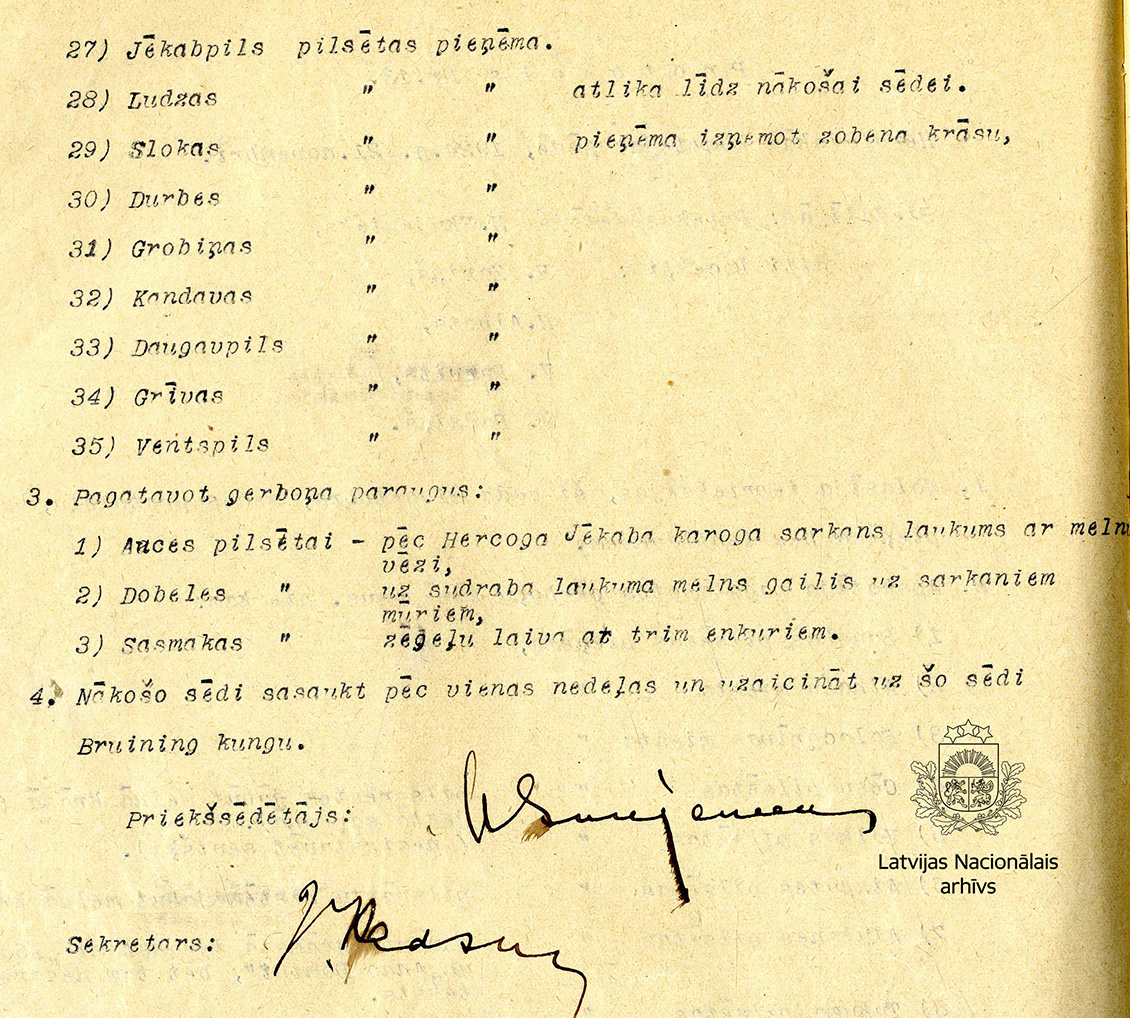 27) Jēkabpils pilsētas pieņēma.
28) Ludzas " " atlika līdz nākošai sēdei.
29) Slokas " " pieņēma izņemot zobena krāsu,
30) Durbes " "
31) Grobiņas " "
32) Kandavas " "
33) Daugavpils " "
34) Grīvas " "
35) Ventspils " "
3. Pagatavot gerboņa paraugus:
1) Auces pilsētai - pēc Hercoga Jēkaba karoga sarkans laukums ar melnu
vēzi,
2) Dobeles " uz sudraba laukuma melns gailis uz sarkaniem
mūriem,
3) Sasmakas " zēģeļu laiva at trim enkuriem.
4. Nākošo sēdi sasaukt pēc vienas nedeļas un uzaicināt uz šo sēdi
Bruining kungu.
Priekšsēdētājs:
Sekretars:
Latvijas Nacionālais
arhīvs